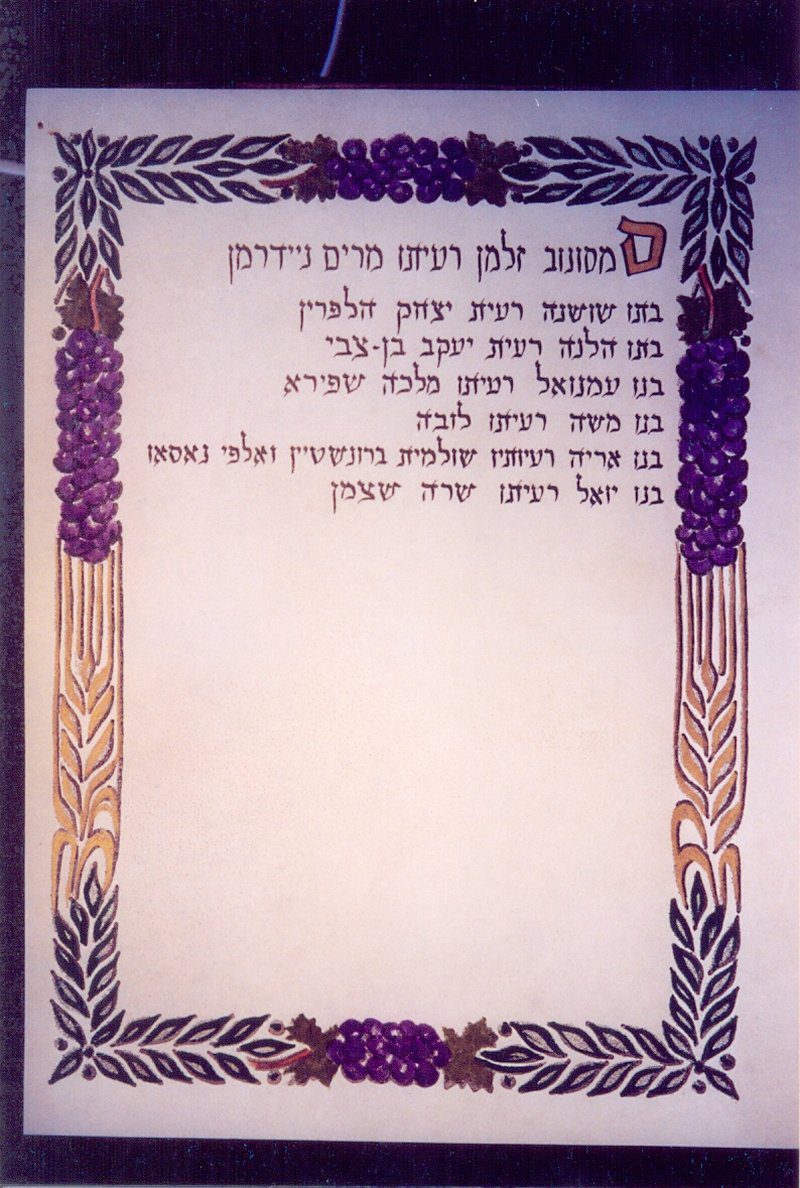 ס
מסונוב זלמן רעיתו מרים ניידרמן
בתו שושנה רעית יצחק הלפרין
בתו הלנה רעית יעקב בן-צבי
בנו עמנואל רעיתו מלכה שפירא
בנו משה רעיתו לובה
בנו אריה רעיותיו שולמית ברונשטיין ואלפי נאסאו
בנו יואל רעיתו שרה שצמן